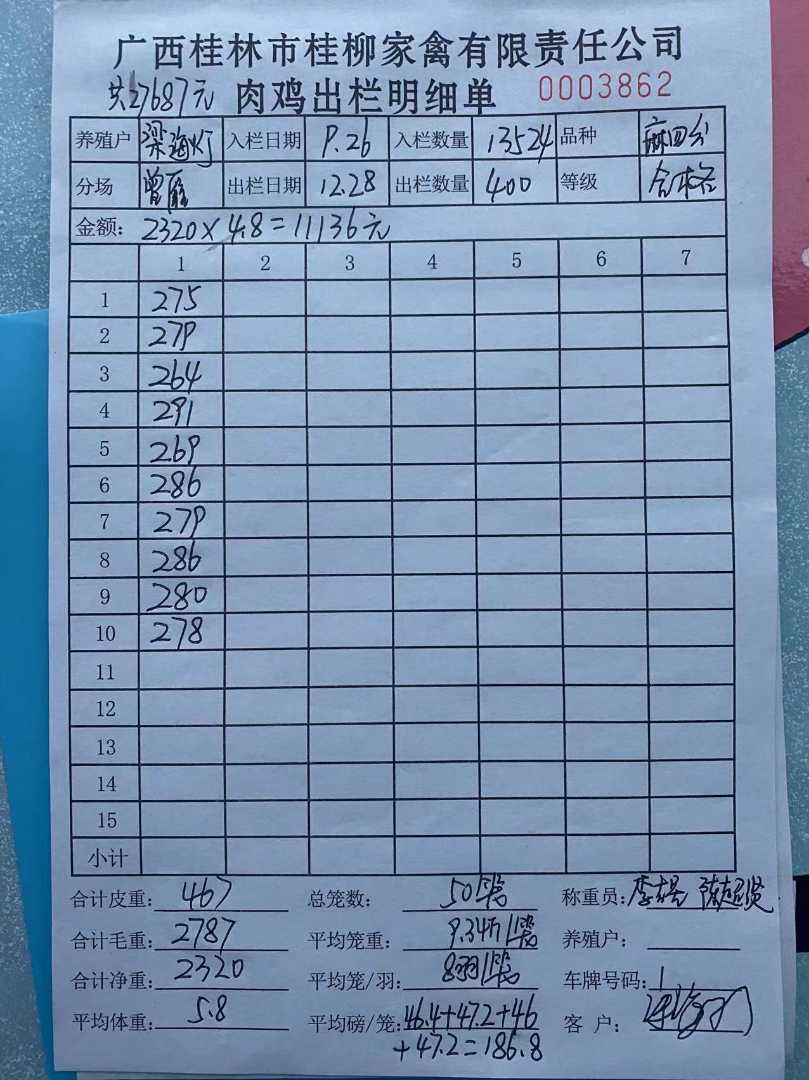 广西桂林市桂柳家禽有限责任公司
共27687元 肉鸡出栏明细单 0003862
养殖户 梁海灯 入栏日期 9.26 入栏数量 13524 品种 麻四公
分场 曾雁 出栏日期 12.28 出栏数量 400 等级 合格
金额: 2320×4.8=11136元
1 2 3 4 5 6 7
1 275
2 279
3 264
4 291
5 269
6 286
7 279
8 286
9 280
10 278
11
12
13
14
15
小计
合计皮重: 467 总笼数: 50 称重员:
合计毛重: 2787 平均笼重: 9.34斤/笼 养殖户:
合计净重: 2320 平均笼/羽: 8羽/笼 车牌号码:
平均体重: 5.8 平均磅/笼: 46.4+47.2+46 客 户:
+47.2=186.8